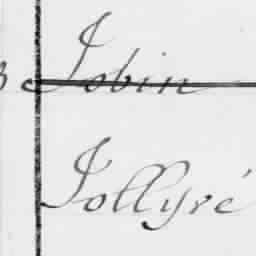 Jobin
Jollyré